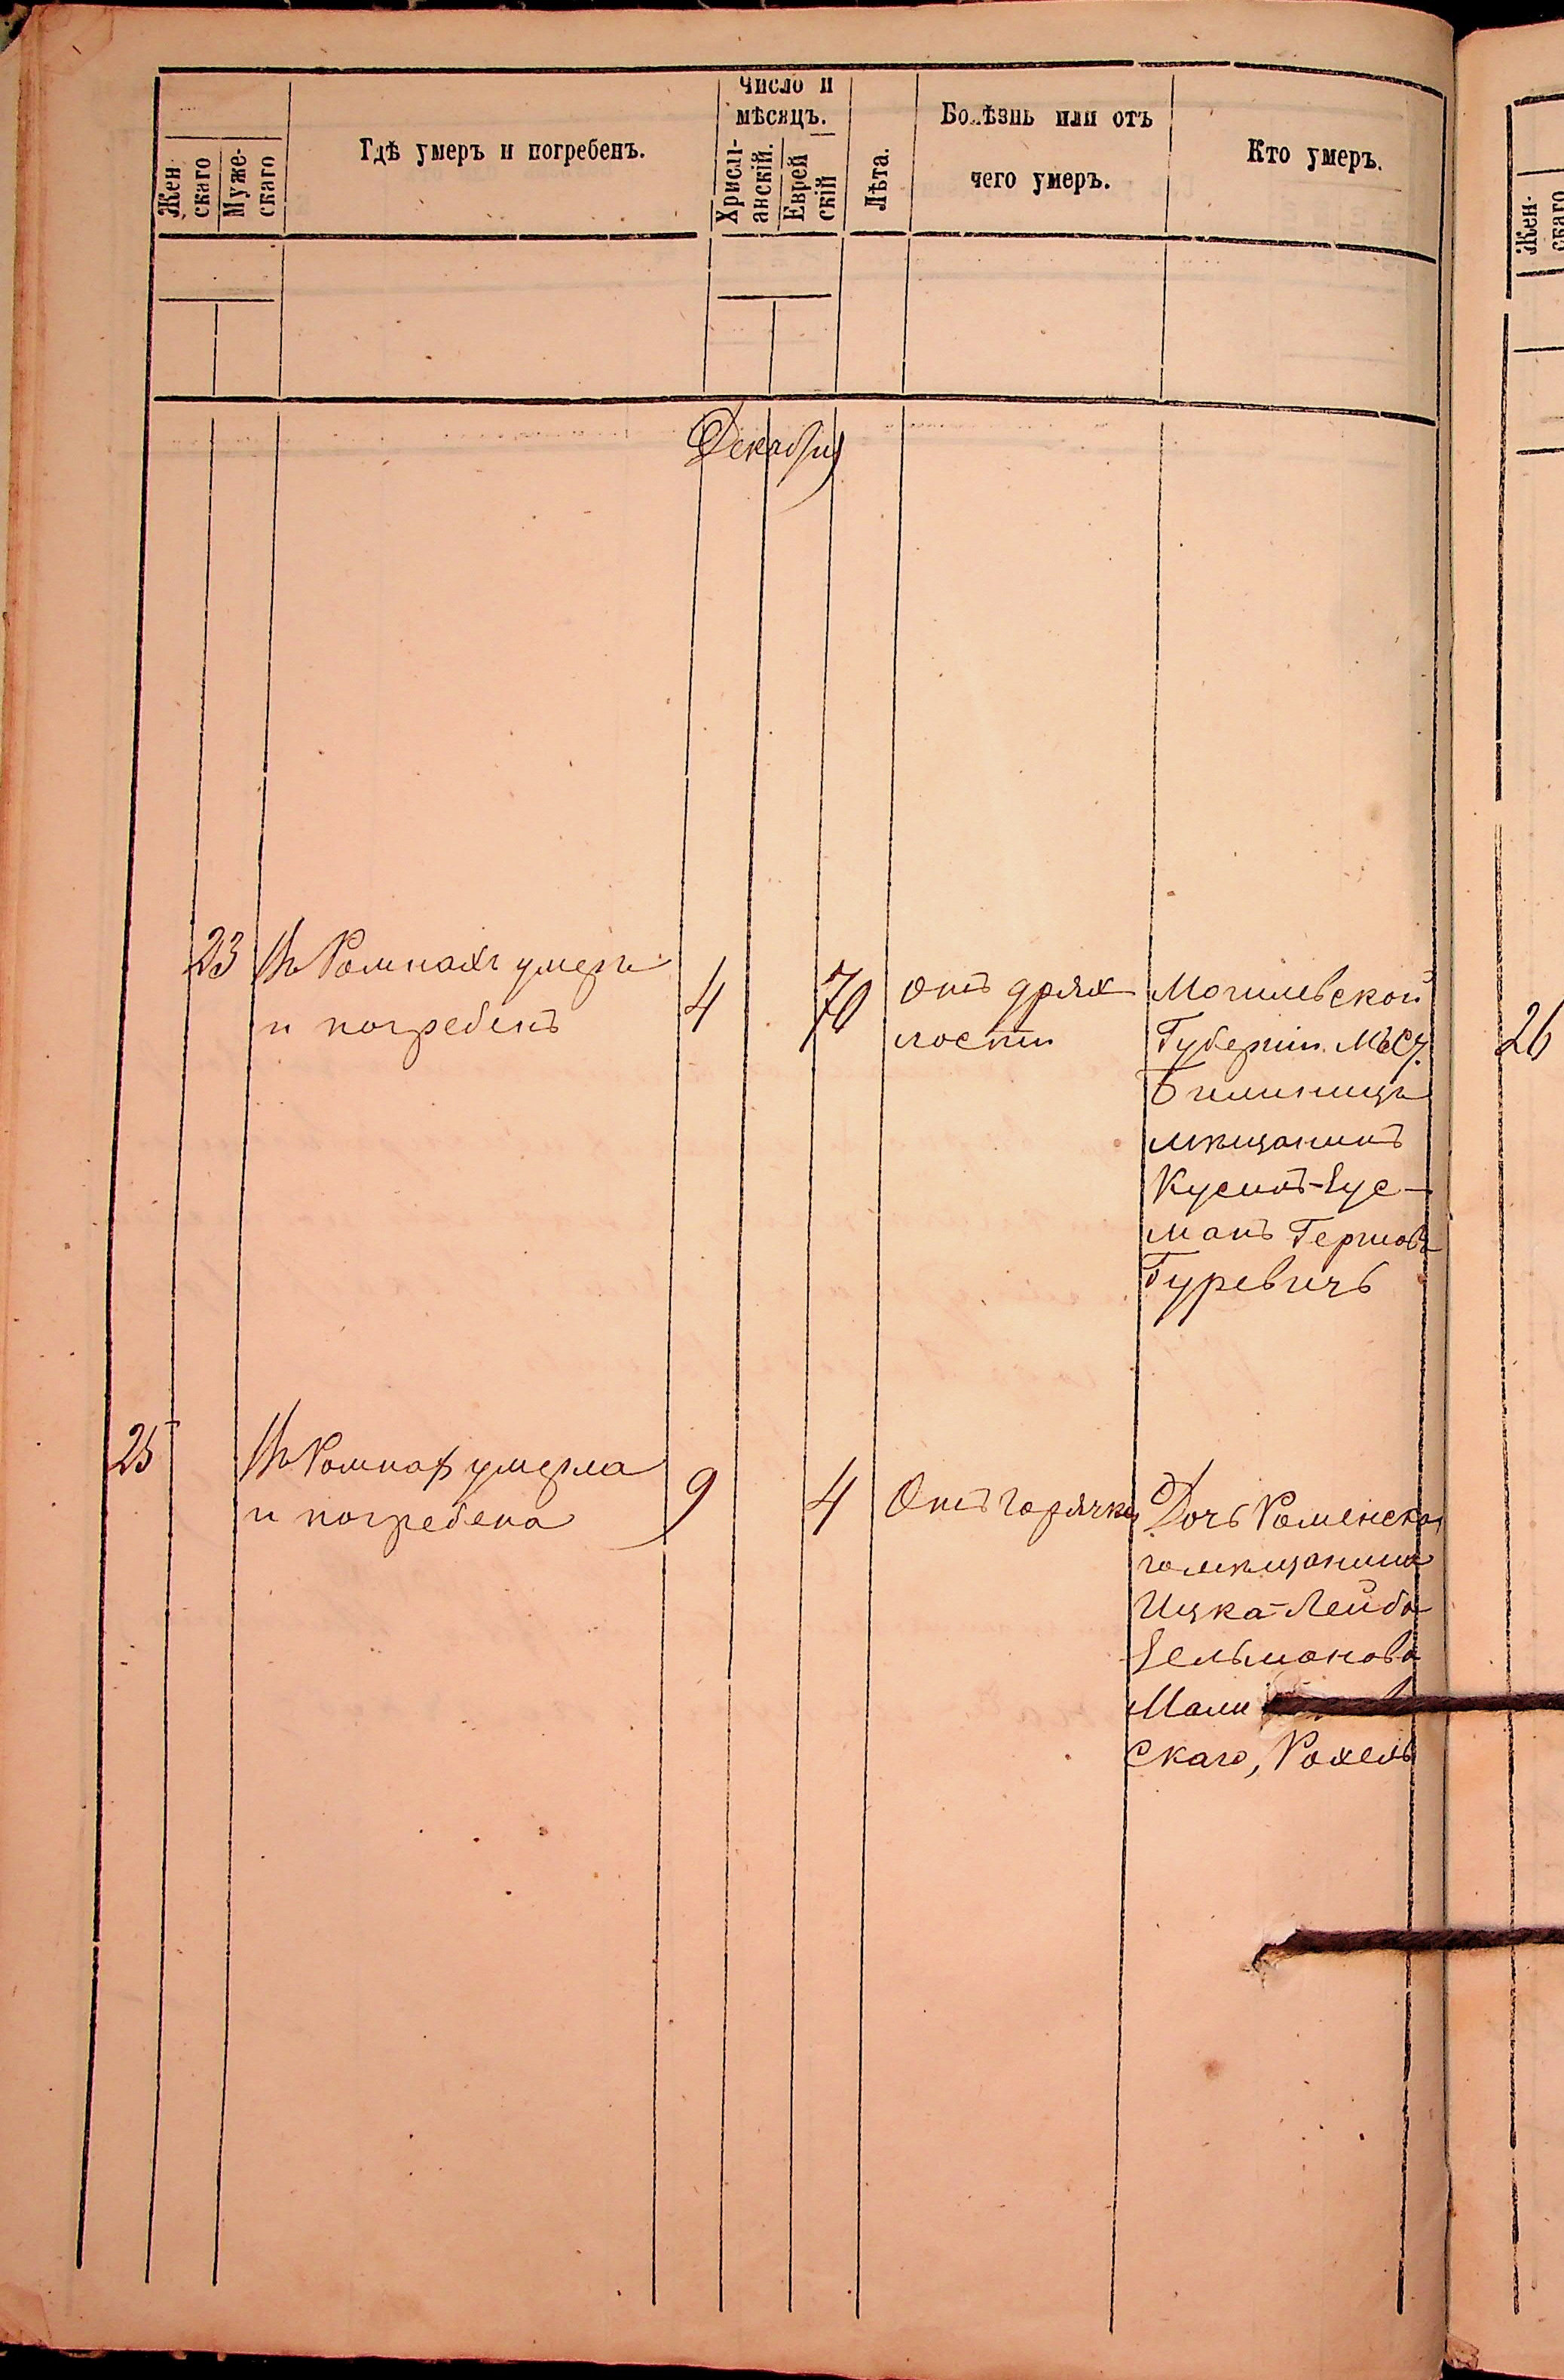 Жен
скаго
Муже-
скаго
Гдѣ умеръ и погребенъ.
Число и
мѣсяцъ.
Христі-
анскій.
Еврей
скій
Лѣта.
Болѣзнь или отъ
чего умеръ.
Кто умеръ.
Декабрь
23
Въ Ромнахъ умеръ
и погребенъ
4
70
отъ дрях
лости
Могилевской
Губерніи. Мѣст.
мѣщанинъ
манъ Гершовъ
Гуревичь
25
Въ Ромнах умерла
и погребена
9
4
Отъ горячки
Дочь Роменска
го мѣщанина
Ицка-Лейба
Зельманова
Мали
скаго, Рохель
Жен-
скаго
26